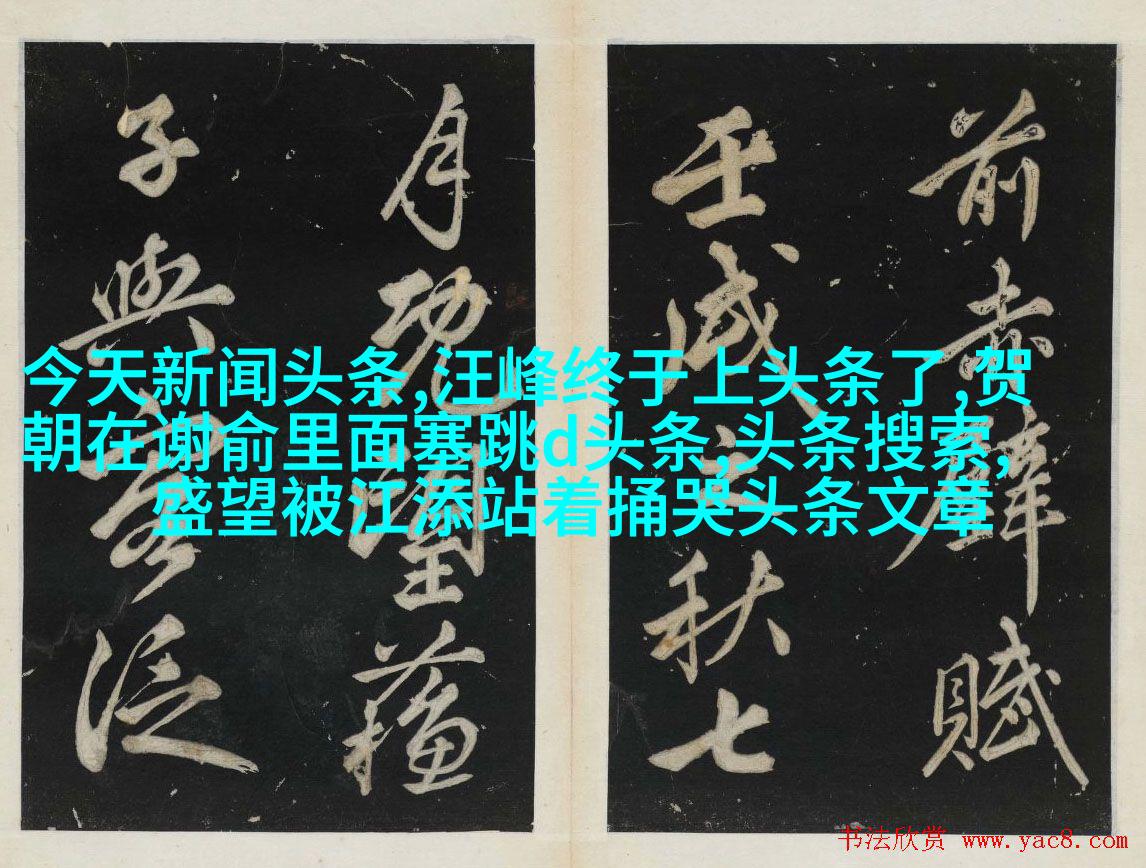 前赤壁賦
壬戌之秋七
月既望蘇
子與客泛
今天新闻头条,汪峰终于上头条了,贺
朝在谢俞里面塞跳d头条,头条搜索,
盛望被江添站着捅哭头条文章
书法欣赏 www.yac8.com